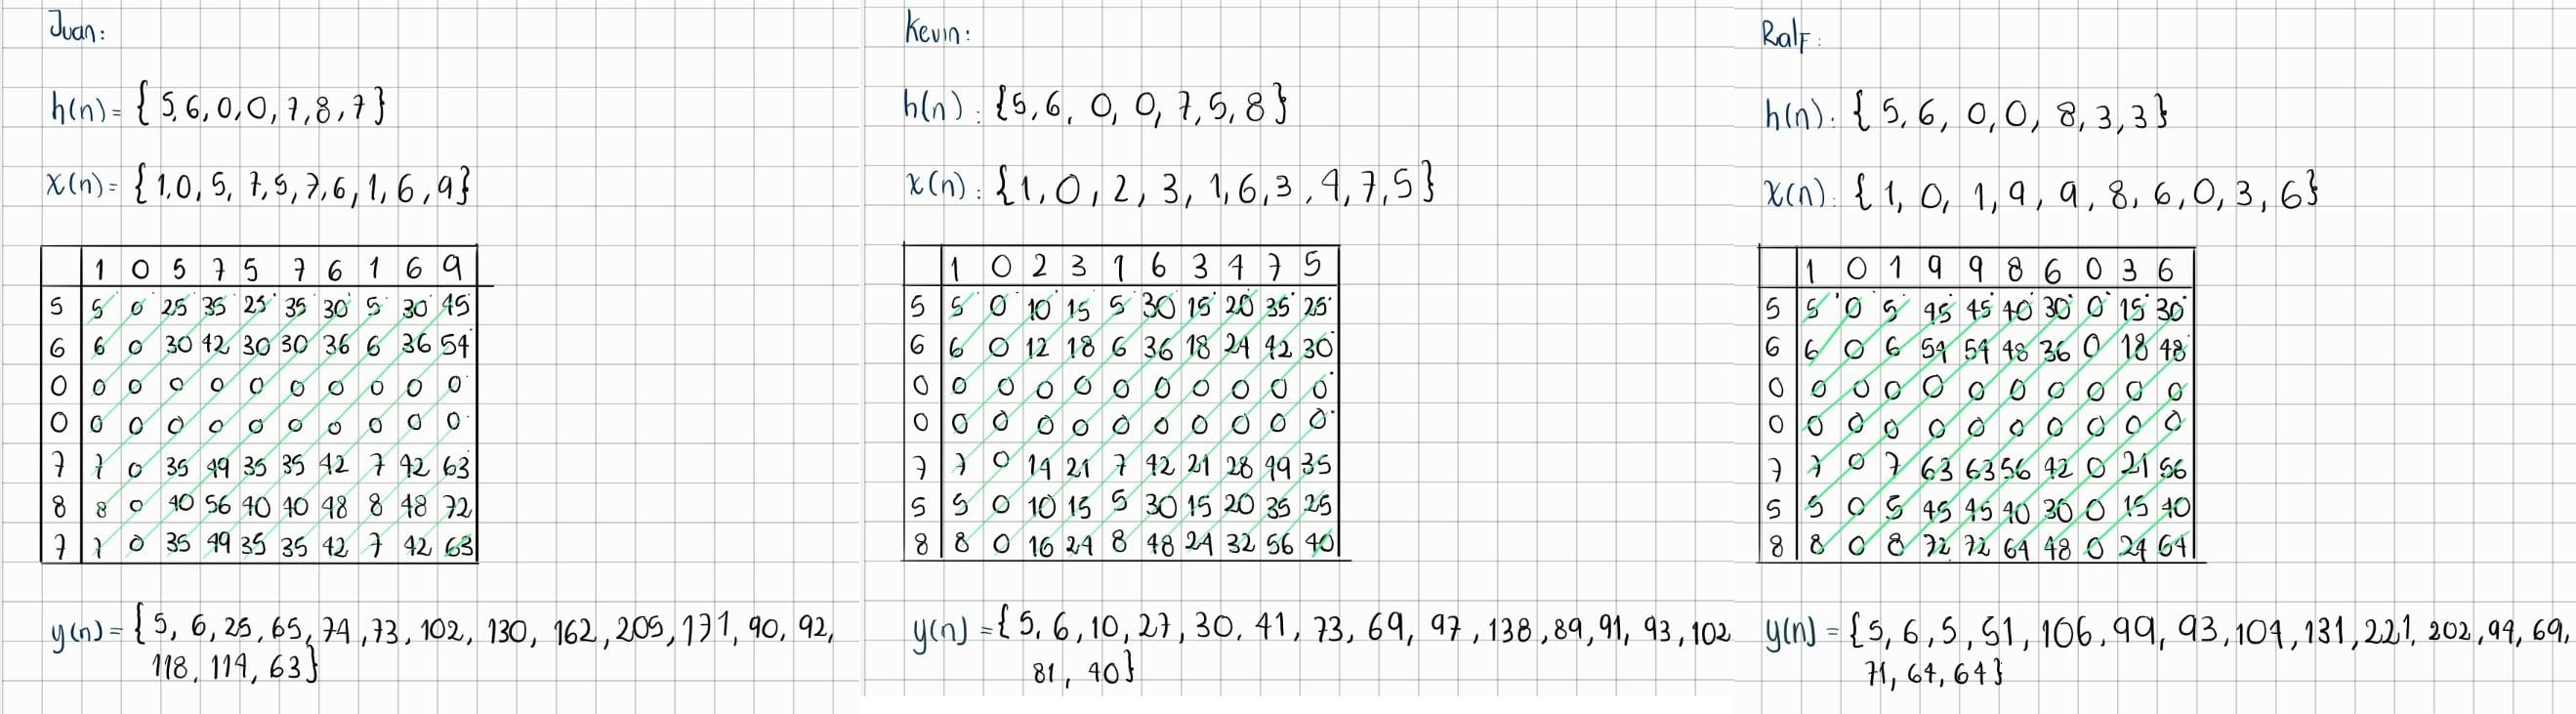 Juan:
h(n) = { 5,6,0,0,7,8,7}
x(n) = { 1,0, 5, 7,5,7,6, 1, 6, 9}
1 0 5 7 5 7 6 1 6 9
5 5 0 25 35 25 35 30 5 30 45
6 6 0 30 42 30 30 36 6 36 54
0 0 0 0 0 0 0 0 0 0 0
0 0 0 0 0 0 0 0 0 0 0
7 7 0 35 49 35 35 42 7 42 63
8 8 0 40 56 40 40 48 8 48 72
7 7 0 35 49 35 35 42 7 42 63
y(n) = { 5, 6, 25, 65, 74, 73, 102, 130, 162, 205, 171, 90, 92,
118, 114, 63}
Kevin:
h(n) : {5,6, 0, 0, 7,5,8}
x(n) : {1,0,2,3,1,6,3,4,7,5}
1 0 2 3 1 6 3 4 7 5
5 5 0 10 15 5 30 15 20 35 25
6 6 0 12 18 6 36 18 24 42 30
0 0 0 0 0 0 0 0 0 0 0
0 0 0 0 0 0 0 0 0 0 0
7 7 0 14 21 7 42 21 28 49 35
5 5 0 10 15 5 30 15 20 35 25
8 8 0 16 24 8 48 24 32 56 40
y(n) = {5, 6, 10, 27, 30, 41, 73, 69, 97, 138, 89, 91, 93, 102
81, 40}
Ralf:
h(n) : { 5, 6, 0,0, 8,3,3}
x(n) : { 1, 0, 1,9, 9, 8, 6, 0, 3, 6}
1 0 1 9 9 8 6 0 3 6
5 5 0 5 45 45 40 30 0 15 30
6 6 0 6 54 54 48 36 0 18 48
0 0 0 0 0 0 0 0 0 0 0
0 0 0 0 0 0 0 0 0 0 0
7 7 0 7 63 63 56 42 0 21 56
5 5 0 5 45 45 40 30 0 15 40
8 8 0 8 72 72 64 48 0 24 64
y(n) = {5, 6, 5, 51, 106, 99, 93, 104, 131, 221, 202, 94, 69,
71, 64, 64}